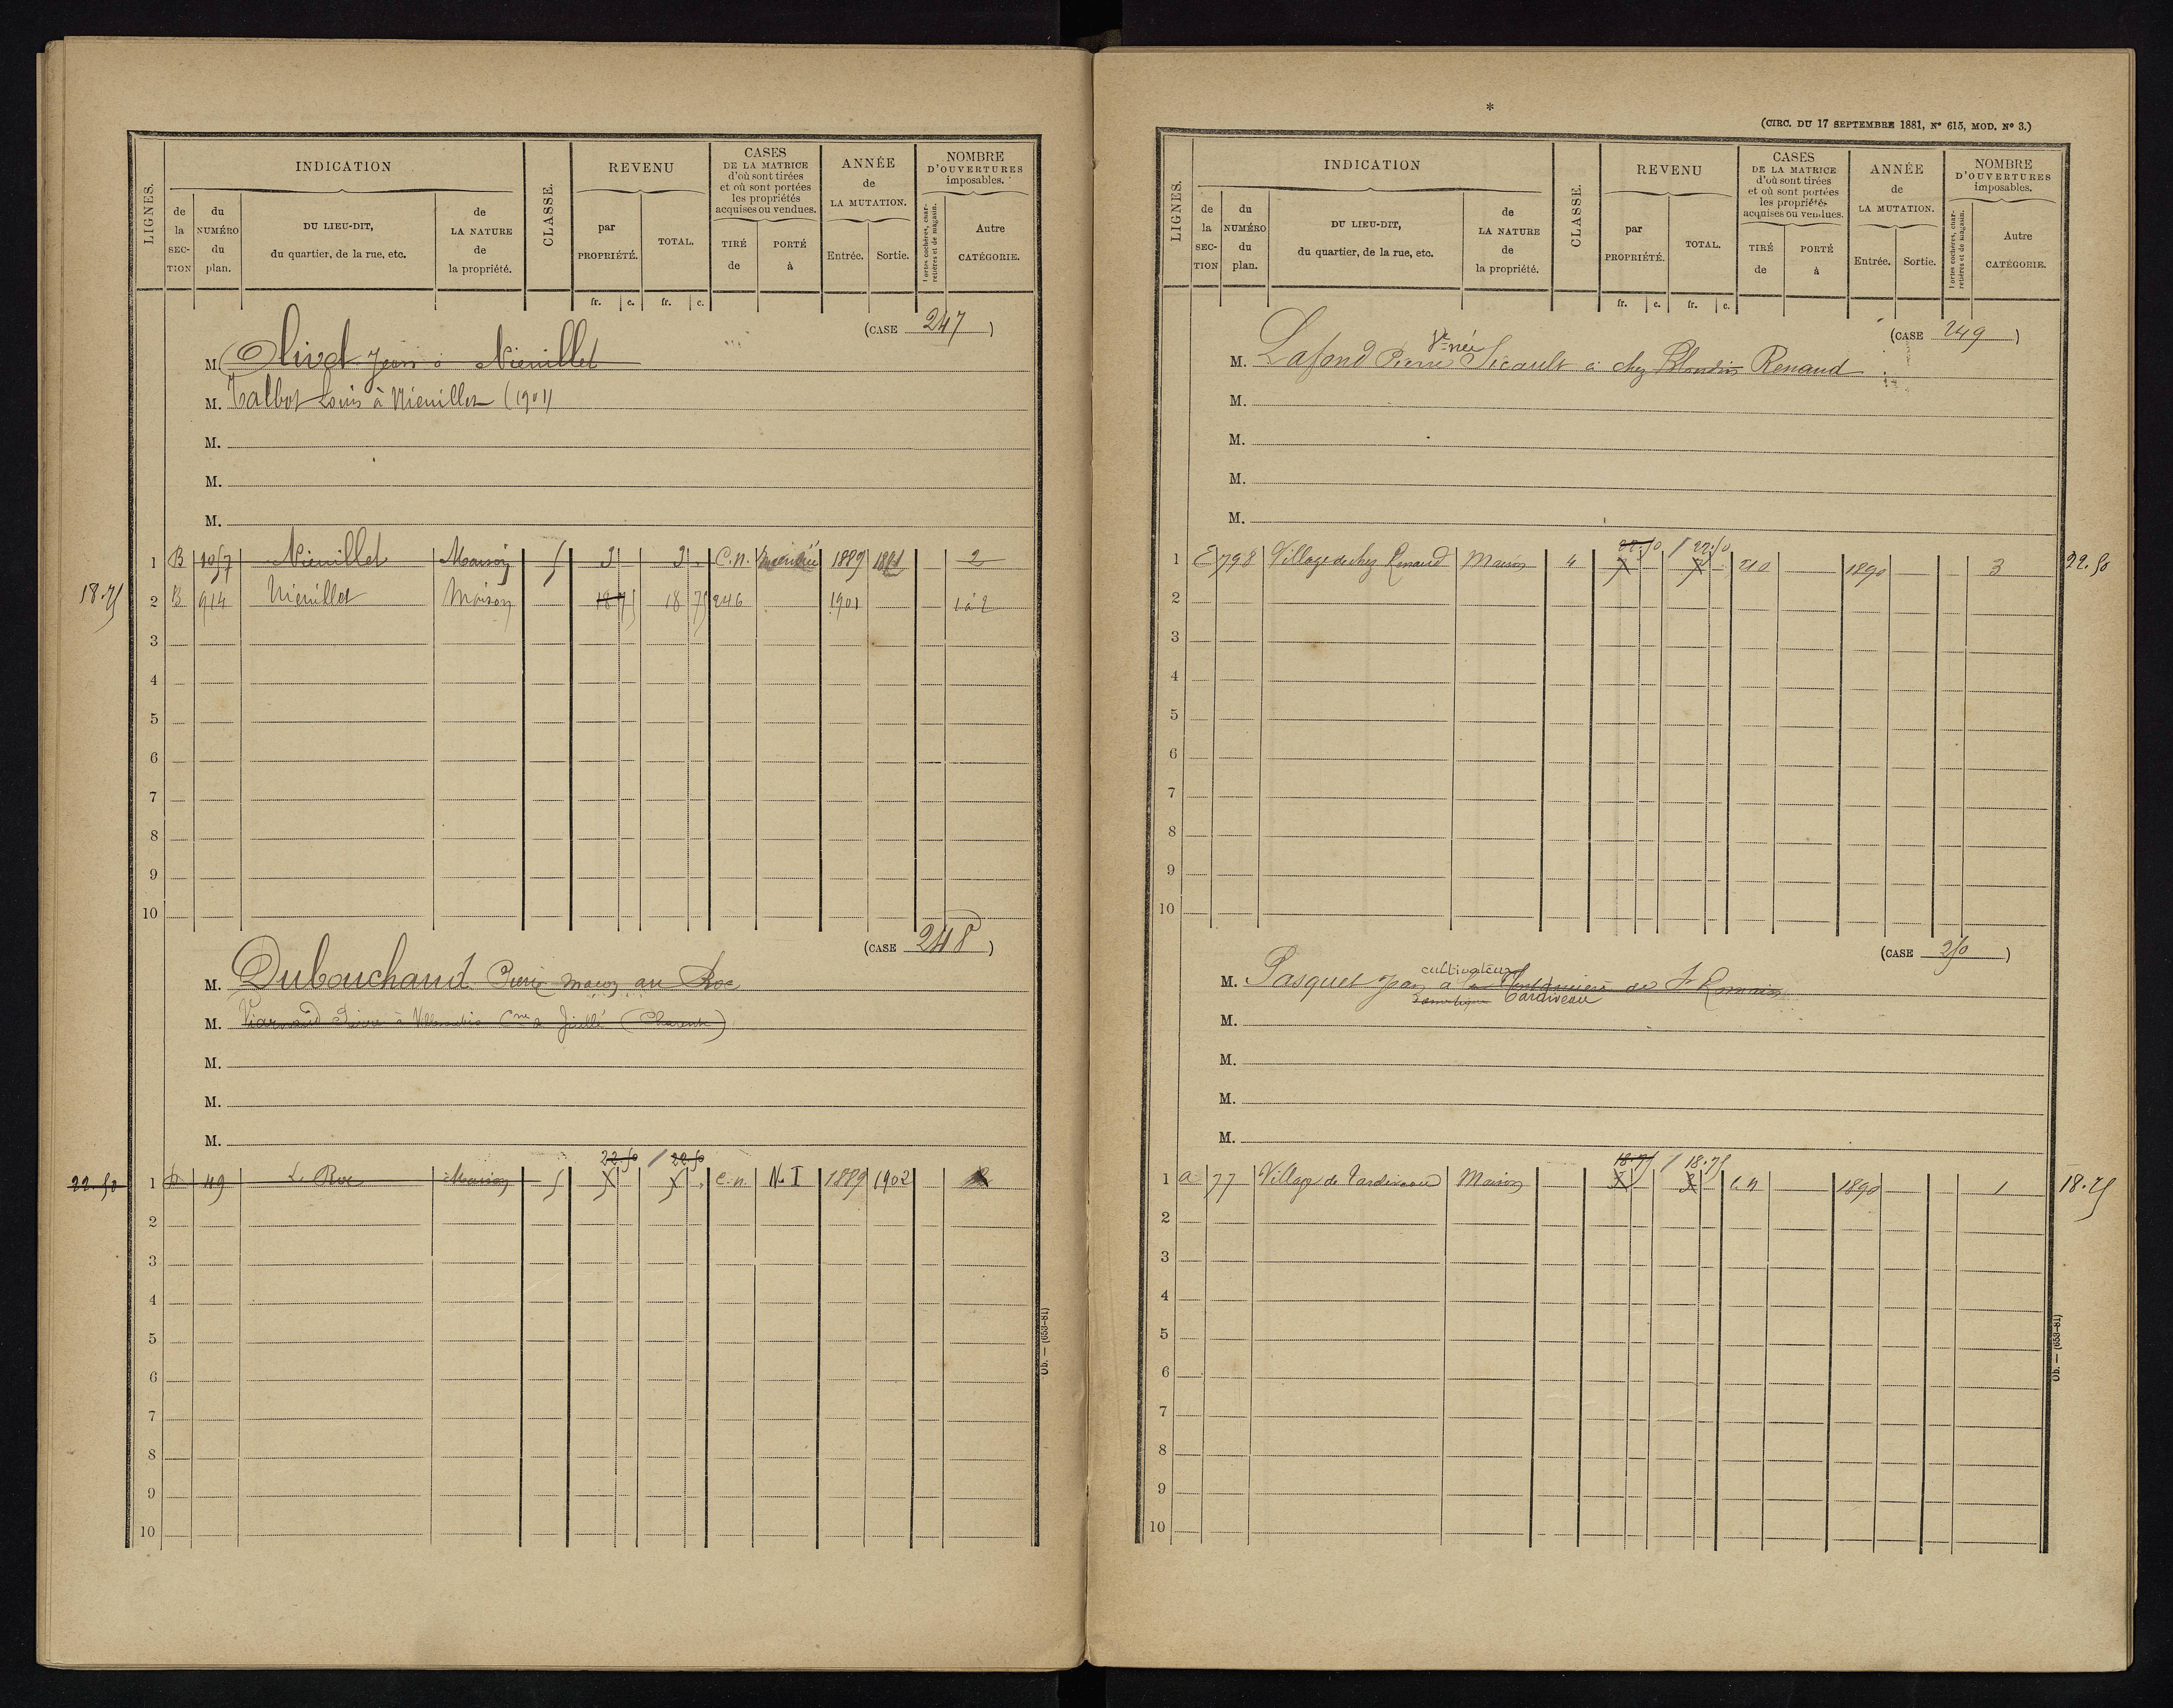 LIGNES.
INDICATION
de la SECTION
du NUMÉRO du plan.
DU LIEU-DIT, du quartier, de la rue, etc.
de LA NATURE de la propriété.
CLASSE.
REVENU
par PROPRIÉTÉ.
TOTAL.
fr. c. fr. c.
CASES DE LA MATRICE d'où sont tirées et où sont portées les propriétés acquises ou vendues.
TIRÉ de
PORTÉ à
ANNÉE de LA MUTATION.
Entrée. Sortie.
NOMBRE D'OUVERTURES imposables.
Portes cochères, charretières et de magasin.
Autre CATÉGORIE.
(CASE 247)
M. Olivet Jean à Niéuillet
M. Talbot Louis à Niéuillet (1901)
M.
M.
M.
1 B 1057 Niéuillet Maison 5 3 3 C.n. 1889 2
18.75 2 B 914 Niéuillet Maison 18 75 18 75 246 1901 1 à 2
3
4
5
6
7
8
9
10
(CASE 248)
M. Dubouchaud Pierre maçon au Roc
M. Pierre à Cne de Juillé (Charente)
M.
M.
M.
22.50 / 22.50
22.50 1 49 Le Roc Maison 5 X X C.n. N.I 1889 1902
2
3
4
5
6
7
8
9
10
Ob. — (653-81)
*
(CIRC. DU 17 SEPTEMBRE 1881, N° 615, MOD. N° 3.)
LIGNES.
INDICATION
de la SECTION
du NUMÉRO du plan.
DU LIEU-DIT, du quartier, de la rue, etc.
de LA NATURE de la propriété.
CLASSE.
REVENU
par PROPRIÉTÉ.
TOTAL.
fr. c. fr. c.
CASES DE LA MATRICE d'où sont tirées et où sont portées les propriétés acquises ou vendues.
TIRÉ de
PORTÉ à
ANNÉE de LA MUTATION.
Entrée. Sortie.
NOMBRE D'OUVERTURES imposables.
Portes cochères, charretières et de magasin.
Autre CATÉGORIE.
(CASE 249)
Ve née
M. Lafond Pierre Sicault à chez Blondin Renaud
M.
M.
M.
M.
22.50 / 22.50
1 E 798 Village de chez Renaud Maison 4 210 1890 3 22.50
2
3
4
5
6
7
8
9
10
(CASE 250)
cultivateur
M. Pasquet Jean à la de St Romain
domestique Tardiveau
M.
M.
M.
M.
18.75 / 18.75
1 a 77 Village de Tardiveau Maison C n 1890 1 18.75
2
3
4
5
6
7
8
9
10
Ob. — (653-81)